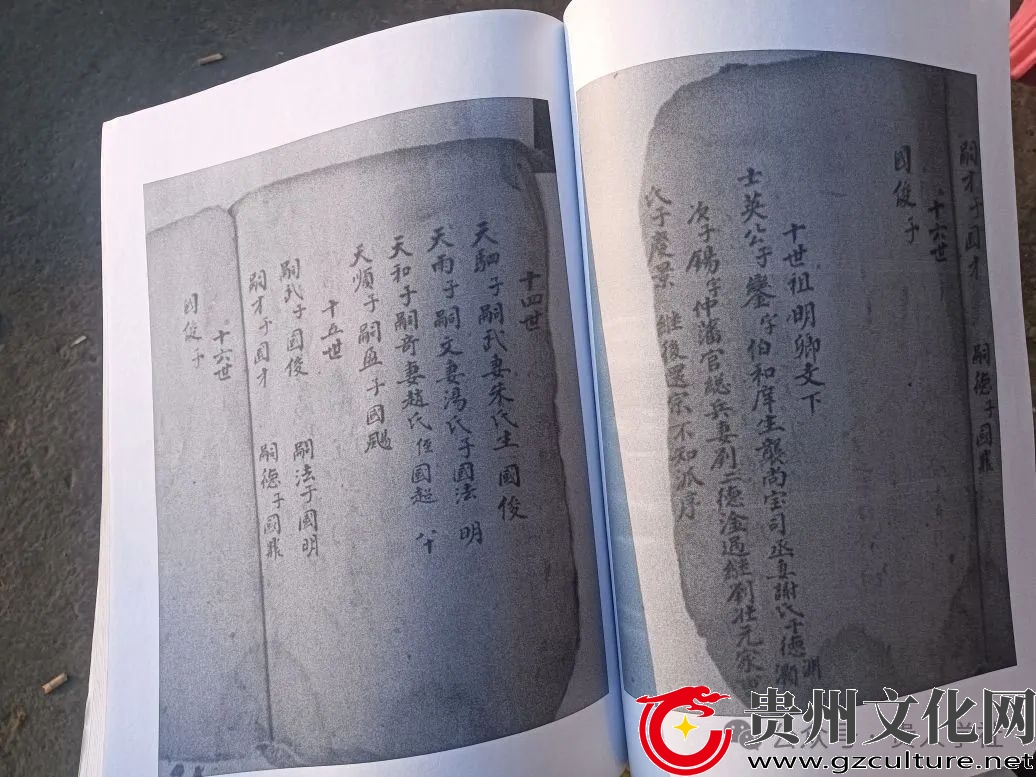 嗣才子國才　嗣德子國鼎
十六世
國俊子
十世祖明卿支下
士英公子鑾字伯和庠生襲尚宝司丞妻謝氏子德潤
次子錫字仲藩官總兵妻劉二德淦過繼劉壯元家
氏子慶景　繼後還宗不知派序
十四世
天駟子嗣武妻朱氏生國俊
天雨子嗣文妻湯氏子國法　明
天和子嗣奇妻趙氏侄國超　八十
天順子嗣孟子國颺
十五世
嗣武子國俊　嗣法子國明
嗣才子國才　嗣德子國鼎
十六世
國俊子
贵州文化网
www.gzculture.net